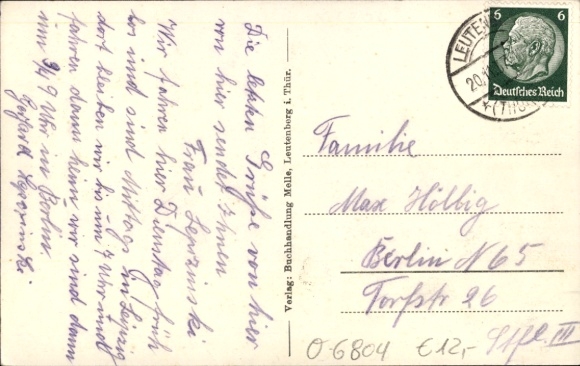 Die letzten Grüße von hier
von hier sendet Ihnen
Frau
Wir fahren hier Dienstag früh
los und sind Mittag in Leipzig
dort bleiben wir bis um 7 Uhr und
fahren dann heim wir sind dann
um 3/4 9 Uhr in Berlin.
Verlag: Buchhandlung Melle, Leutenberg i. Thür.
6 6
Deutsches Reich
LEUTEN
20.
(THÜR
Familie
Max Höllbig
Berlin N 65
Torfstr 26
Stfl. III
0-6804 €12,-